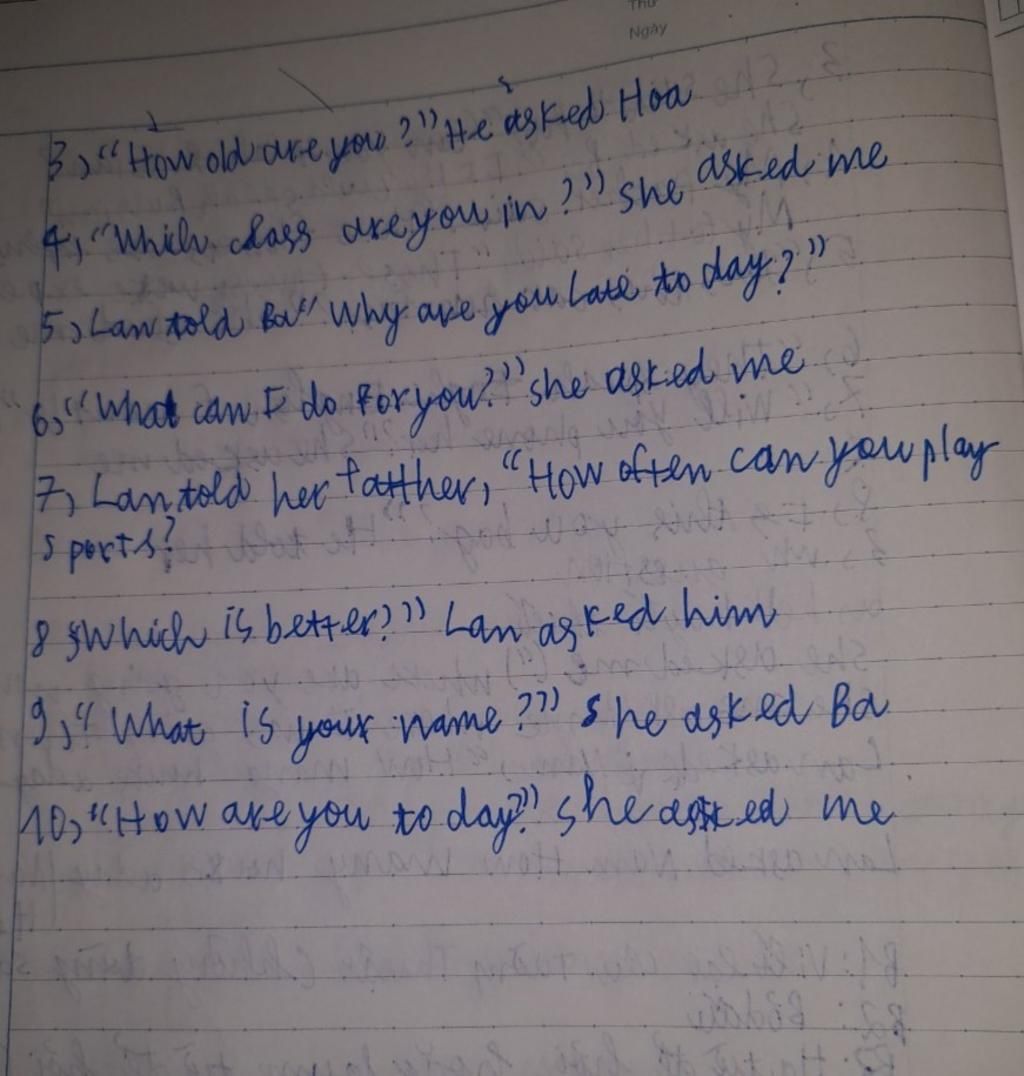 Thứ
Ngày
3, "How old are you?" He asked Hoa
4, "Which class are you in?" she asked me
5, Lan told Ba" Why are you late to day?"
6, "What can I do for you?" she asked me
7, Lan told her fatther, "How often can you play
sports?
8, Which is better?" Lan asked him
9, "What is your name?" she asked Ba
10, "How are you to day?" she asked me